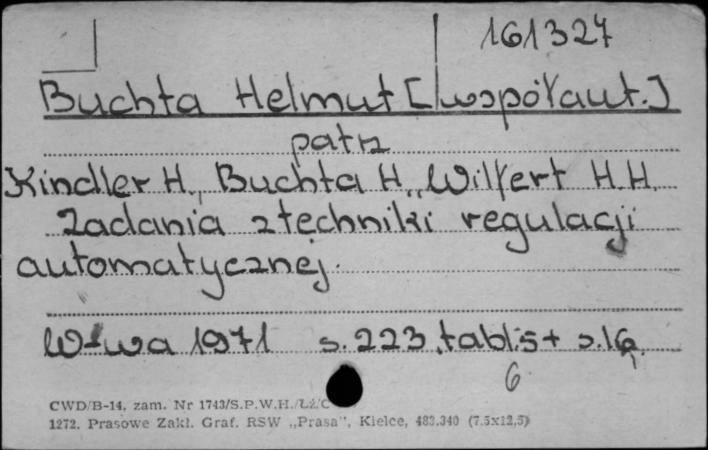 161327
Buchta Helmut [współaut.]
patrz
Kindler H., Buchta H., Wilfert H.H.
Zadania z techniki regulacji
automatycznej.
W-wa 1971 s. 223, tabl. 5 + s. 16
6
CWD/B-14, zam. Nr 1743/S.P.W.H./Łź/C
1272. Prasowe Zakł. Graf. RSW „Prasa", Kielce, 483.340 (7.5x12,5)